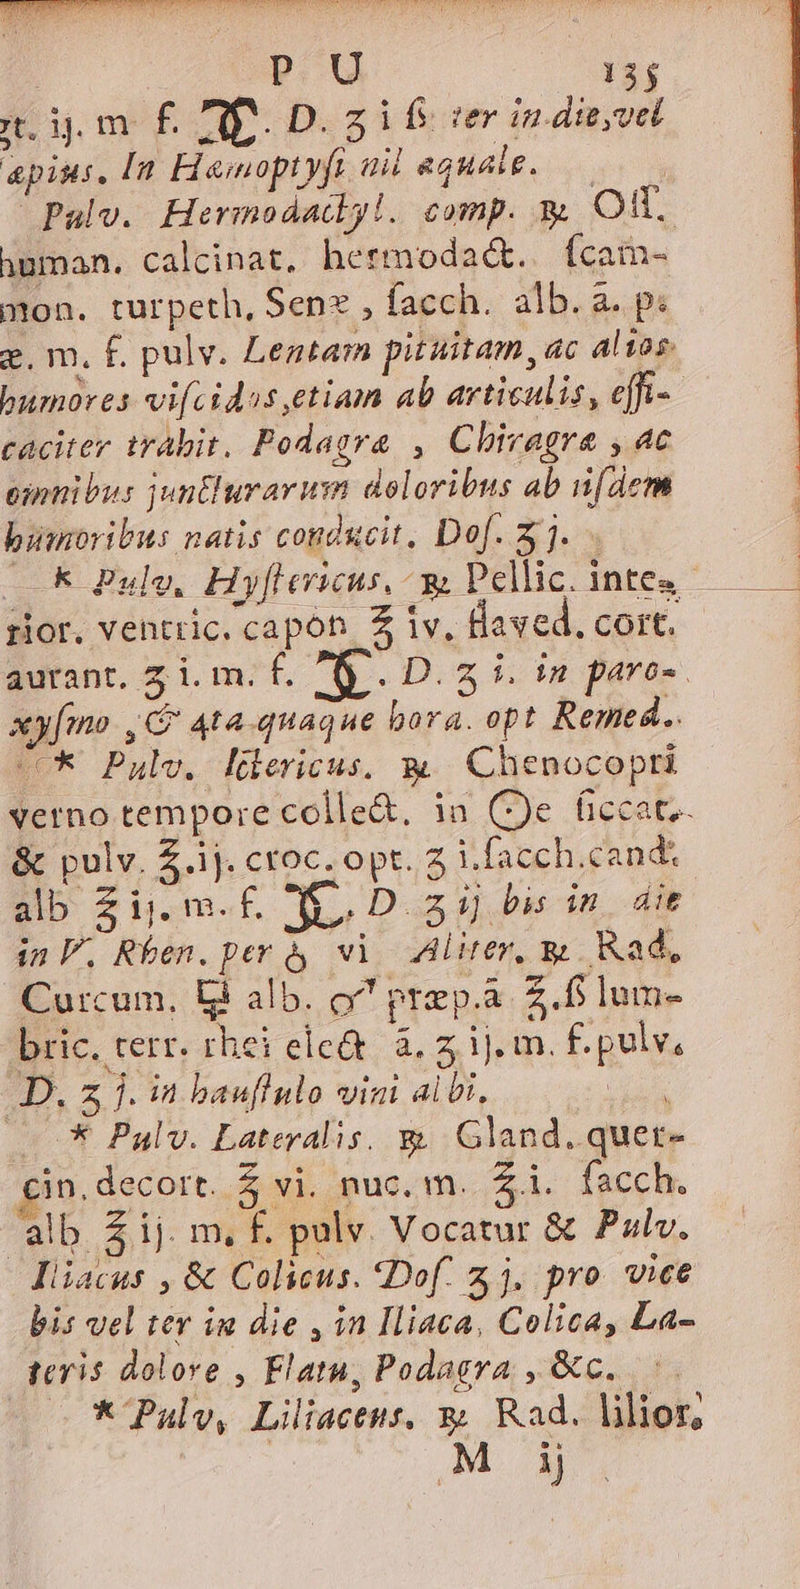 P U 135
gt. ij. m f. 🜋. D. ʒ i ß ter in die, vel
sæpius. In Hæmoptysi nil æquale.
Pulv. Hermodactyl. comp. ℞ Oss.
human. calcinat. hermodact. ſcam-
mon. turpeth, Senæ, ſacch. alb. ā. p.
æ. m. f. pulv. Lentam pituitam, ac alios
humores viſcidos, etiam ab articulis, effi-
caciter trahit. Podagræ, Chiragræ, ac
omnibus junƈturarum doloribus ab iiſdem
humoribus natis conducit. Doſ. ʒ j.
* Pulv. Hyſtericus. ℞ Pellic. inte-
rior. ventric. capon ℥ iv. flaved. cort.
aurant. ʒ i. m. f. D. ʒ i. in paro-
xyſmo, & 4ta quaque hora. opt Remed.
* Pulv. Ictericus. ℞ Chenocopri
verno tempore collect. in ☉e ſiccat.
& pulv. ℥ ij. croc. opt. ʒ i. ſacch. cand.
alb ℥ ij. m. f. D. ʒ ij bis in die
in V. Rhen. per vi Aliter. ℞ Rad.
Curcum. alb. ♂ præp. ā ℥ ß lum-
bric. terr. rhei elect ā. ʒ ij. m. f. pulv.
D. ʒ j. in hauſtulo vini albi.
* Pulv. Lateralis. ℞ Gland. quer-
cin. decort. ℥ vi. nuc. m. ℥ i. ſacch.
alb ℥ ij. m. f. pulv. Vocatur & Pulv.
Iliacus, & Colicus. Doſ. ʒ j. pro vice
bis vel ter in die, in Iliaca, Colica, La-
teris dolore, Flatu, Podagra, &c.
* Pulv, Liliaceus. ℞ Rad. lilior.
M ij